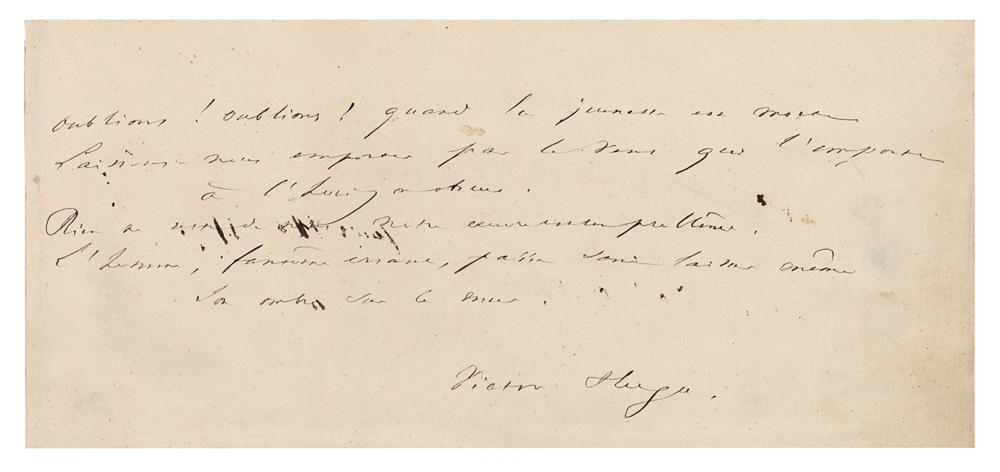 oublions ! oublions ! quand la jeunesse est morte
Laissons-nous emporter par le vent qui l'emporte
à l'horizon obscur.
Rien ne reste de nous, notre œuvre est un problème.
L'homme, fantôme errant, passe sans laisser même
Son ombre sur le mur.
Victor Hugo.